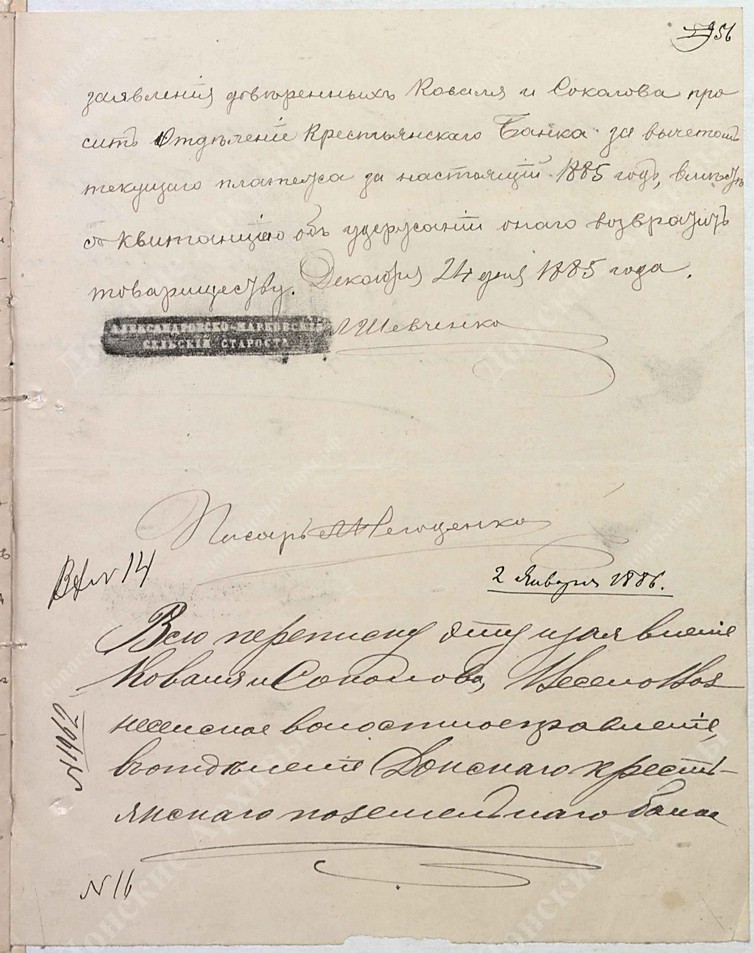 56
заявленія довѣренныхъ Коваля и Соколова про
ситъ Отдѣленіе Крестьянскаго Банка за вычетомъ
текущаго платежа за настоящій 1885 годъ, вмѣстѣ
съ квитанціею объ удержаніи онаго возвратить
товариществу. Декабря 24 дня 1885 года.
АЛЕКСАНДРОВСКО-МАРКОВСКІЙ
СЕЛЬСКІЙ СТАРОСТА
Шевченко
Писарь
14
2 Января 1886.
Всю переписку эту и заявленіе
Коваля и Соколова,
волостное правленіе,
въ отдѣленіе Донскаго кресть-
янскаго поземельнаго банка
N 1962
N 16